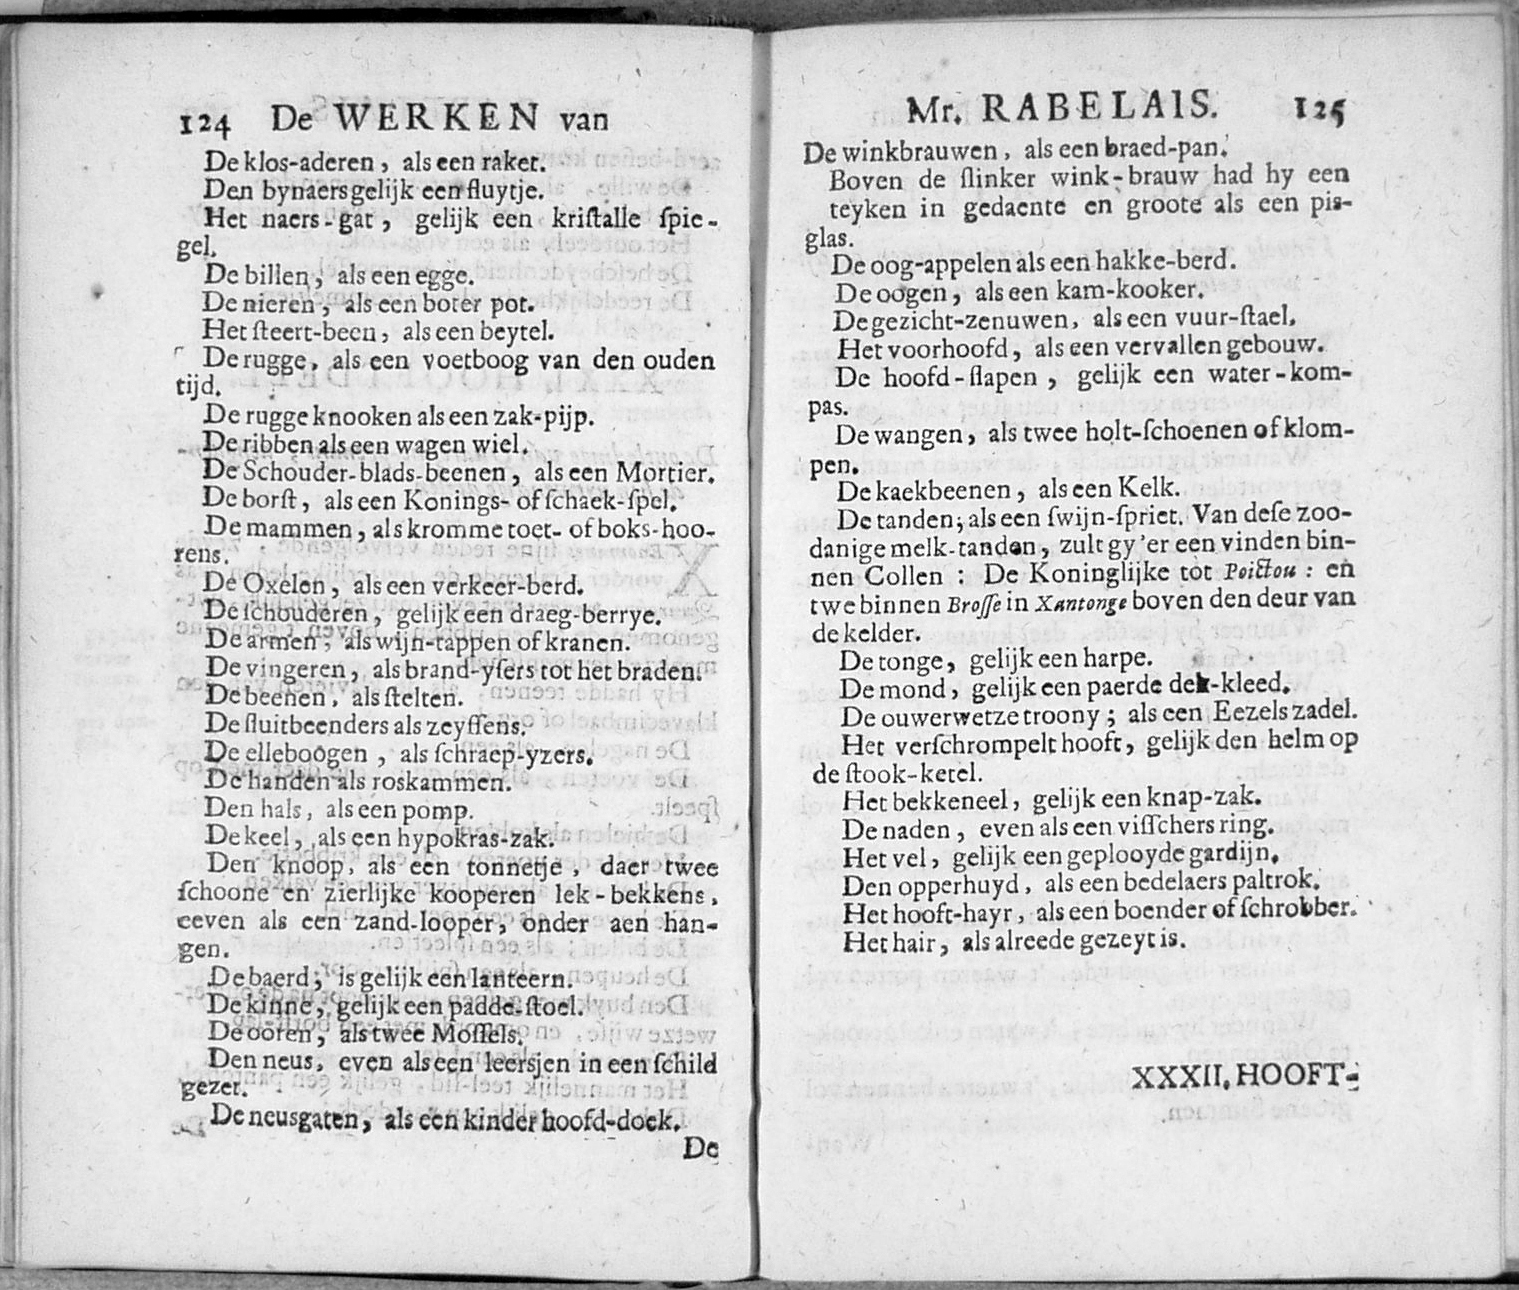 124 De WERKEN van
De klos-aderen, als een raket.
Den bynaersgelijk een fluytje.
Het naers-gat, gelijk een kristalle ſpie-
gel.
De billen, als een egge.
De nieren, als een boter pot.
Het steert-been, als een beytel.
De rugge, als een voetboog van den ouden
tijd.
De rugge knooken als een zak-pijp.
De ribben als een wagen wiel.
De Schouder-blads-beenen, als een Mortier.
De borſt, als een Konings- of ſchaek-ſpel.
De mammen, als kromme toet- of boks-hoo-
rens.
De Oxelen, als een verkeer-berd.
De ſchouderen, gelijk een draeg-berrye.
De armen, als wijn-tappen of kranen.
De vingeren, als brand-yſers tot het braden.
De beenen, als ſtelten.
De ſluitbeenders als zeyſſens.
De elleboogen, als ſchraep-yzers.
De handen als roskammen.
Den hals, als een pomp.
De keel, als een hypokras-zak.
Den knoop, als een tonnetje, daer twee
ſchoone en zierlijke kooperen lek-bekkens,
eeven als een zand-looper, onder aen han-
gen.
De baerd, is gelijk een lanteern.
De kinne, gelijk een padde-ſtoel.
De ooren, als twee Moſſels.
Den neus, even als een leersjen in een ſchild
gezet.
De neusgaten, als een kinder hoofd-doek.
De
Mr. RABELAIS. 125
De winkbrauwen, als een braed-pan.
Boven de ſlinker wink-brauw had hy een
teyken in gedaente en groote als een pis-
glas.
De oog-appelen als een hakke-berd.
De oogen, als een kam-kooker.
De gezicht-zenuwen, als een vuur-ſtael.
Het voorhoofd, als een vervallen gebouw.
De hoofd-ſlapen, gelijk een water-kom-
pas.
De wangen, als twee holt-ſchoenen of klom-
pen.
De kaekbeenen, als een Kelk.
De tanden, als een ſwijn-ſpriet. Van deſe zoo-
danige melk-tanden, zult gy 'er een vinden bin-
nen Collen: De Koninglijke tot Poictou: en
twe binnen Broſſe in Xantonge boven den deur van
de kelder.
De tonge, gelijk een harpe.
De mond, gelijk een paerde dek-kleed.
De ouwerwetze troony; als een Eezels zadel.
Het verſchrompelt hooft, gelijk den helm op
de ſtook-ketel.
Het bekkeneel, gelijk een knap-zak.
De naden, even als een viſſchers ring.
Het vel, gelijk een geplooyde gardijn.
Den opperhuyd, als een bedelaers paltrok.
Het hooft-hayr, als een boender of ſchrobber.
Het hair, als alreede gezeyt is.
XXXII. HOOFT-